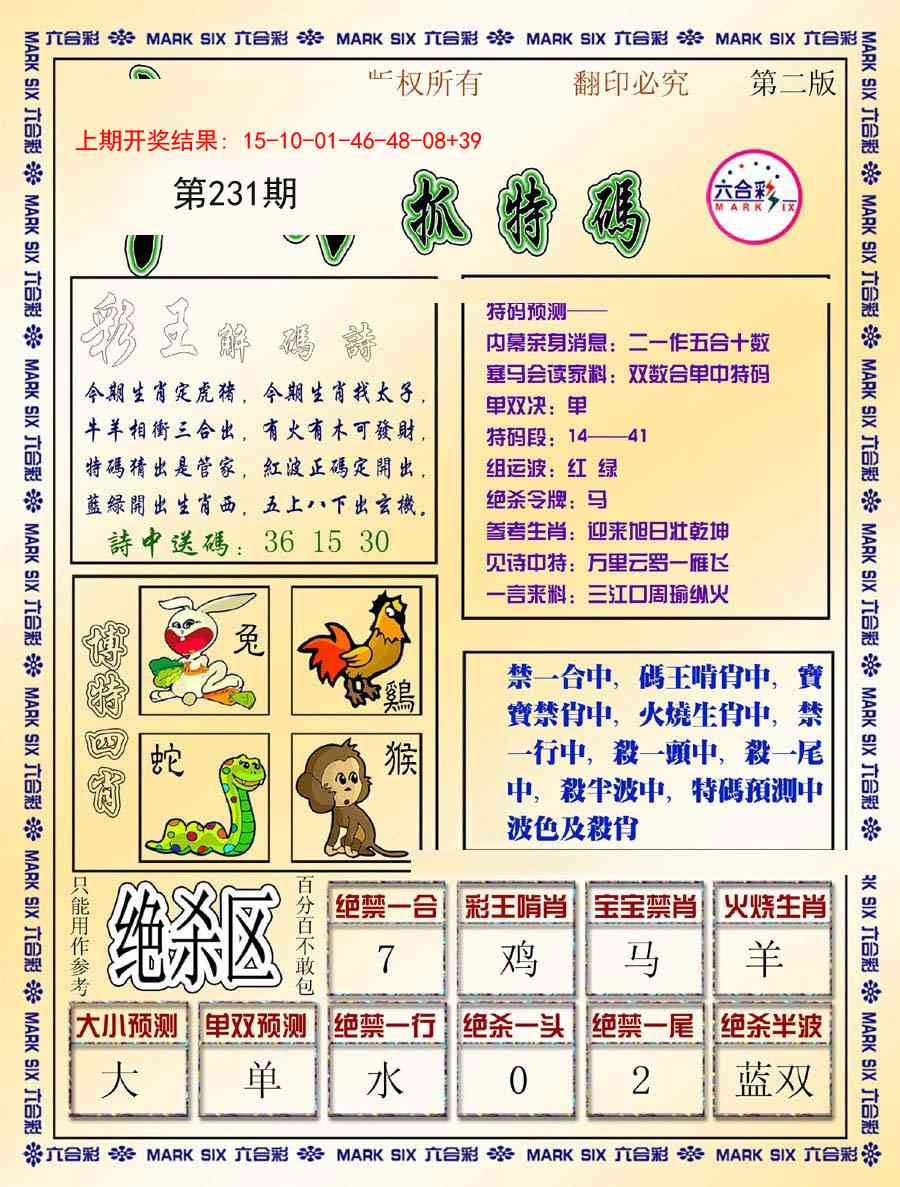 六合彩 MARK SIX 六合彩 MARK SIX 六合彩 MARK SIX 六合彩 MARK SIX 六合彩
版权所有 翻印必究 第二版
上期开奖结果：15-10-01-46-48-08+39
第231期
抓特碼
六合彩
MARK SIX
彩王解碼詩
今期生肖定虎猪，今期生肖找太子，
牛羊相衝三合出，有火有木可發財，
特碼猜出是管家，紅波正碼定開出，
藍綠開出生肖西，五上八下出玄機。
詩中送碼：36 15 30
特码预测——
内幕亲身消息：二一作五合十数
塞马会读家料：双数合单中特码
单双决：单
特码段：14——41
组运波：红 绿
绝杀令牌：马
参考生肖：迎来旭日壮乾坤
见诗中特：万里云罗一雁飞
一言来料：三江口周瑜纵火
博特四肖
兔
鷄
蛇
猴
禁一合中，碼王啃肖中，寶
寶禁肖中，火燒生肖中，禁
一行中，殺一頭中，殺一尾
中，殺半波中，特碼預測中
波色及殺肖
只能用作参考
绝杀区
百分百不敢包
绝禁一合 彩王啃肖 宝宝禁肖 火烧生肖
7 鸡 马 羊
大小预测 单双预测 绝禁一行 绝杀一头 绝禁一尾 绝杀半波
大 单 水 0 2 蓝双
六合彩 MARK SIX 六合彩 MARK SIX 六合彩 MARK SIX 六合彩 MARK SIX 六合彩